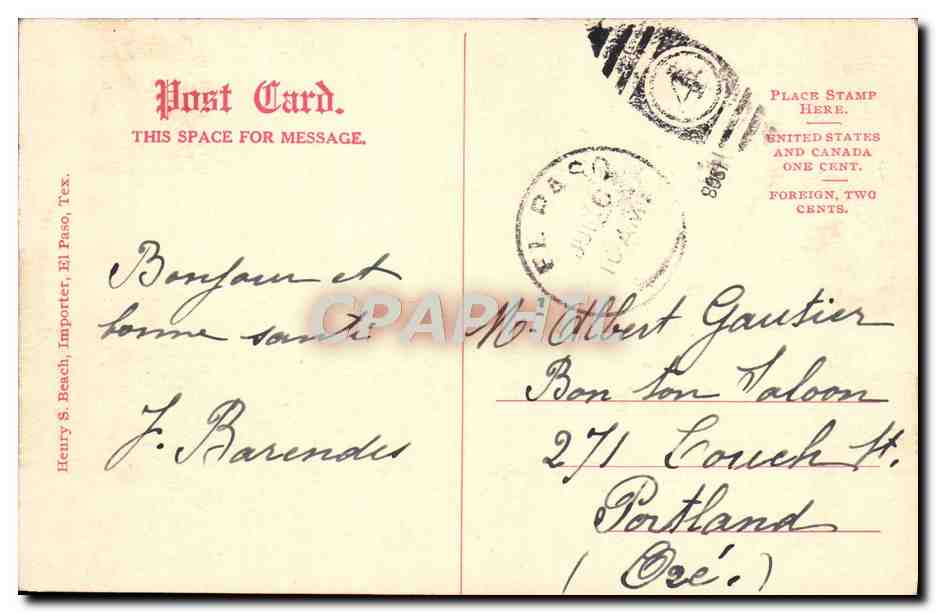 Post Card.
THIS SPACE FOR MESSAGE.
Henry S. Beach, Importer, El Paso, Tex.
Bonjour et
bonne santé
F. Barendes
EL PASO
10 AM
4
1908
PLACE STAMP
HERE.
UNITED STATES
AND CANADA
ONE CENT.
FOREIGN, TWO
CENTS.
CPAPHIL
Mr. Albert Gautier
Bon ton Saloon
271 Couch St.
Portland
(Oré.)